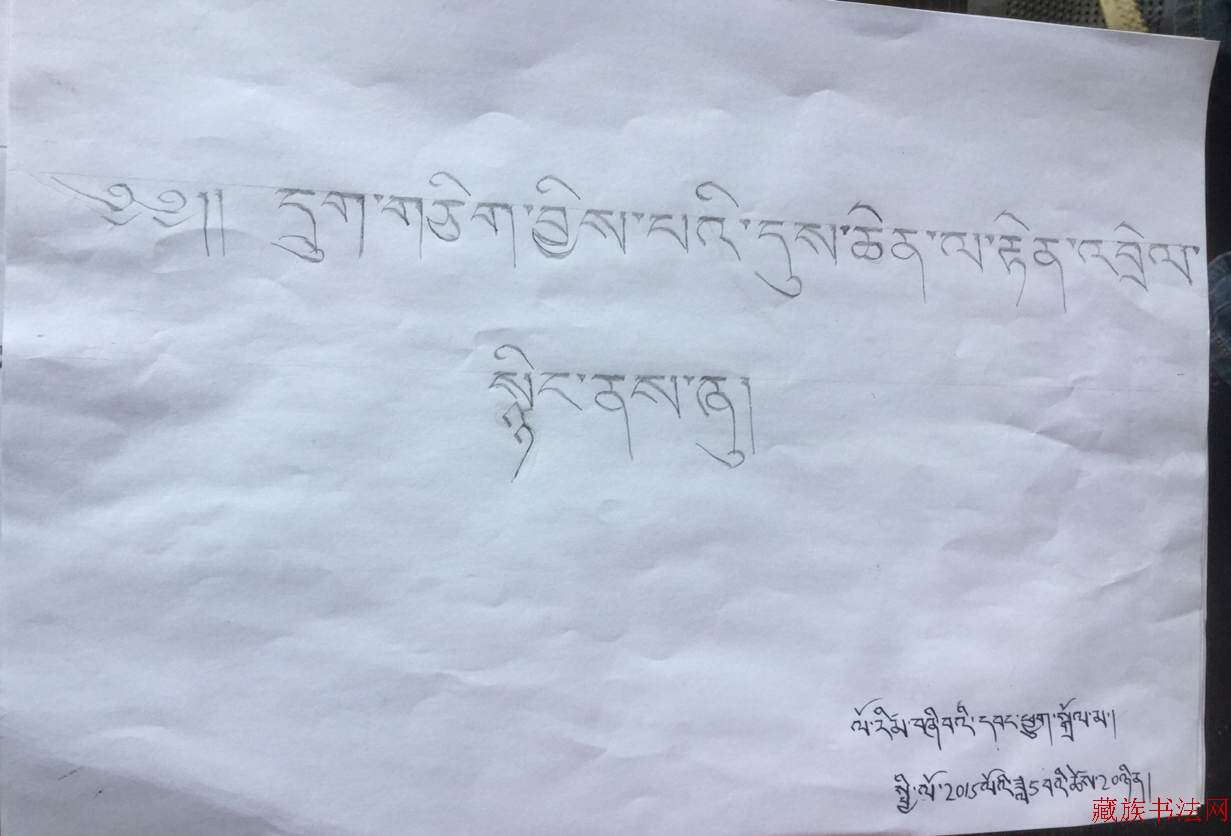 ༄༅།། དྲུག་གཅིག་བྱིས་པའི་དུས་ཆེན་ལ་རྟེན་འབྲེལ་
སྙིང་ནས་ཞུ།
ལོ་རིམ་བཞི་བའི་དབང་ཕྱུག་སྒྲོལ་མ།
སྤྱི་ལོ་2015ལོའི་ཟླ5བའི་ཚེས་20ཉིན།
藏族书法网